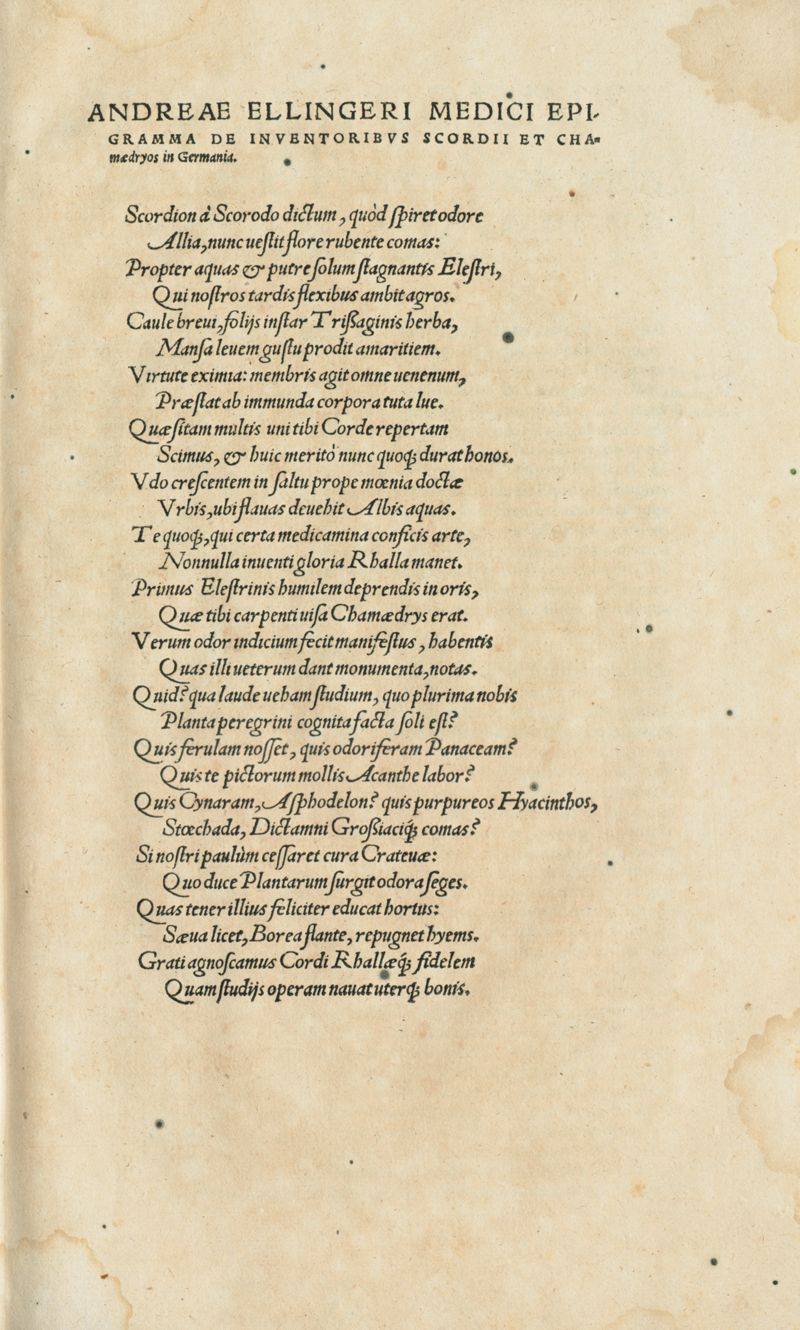 ANDREAE ELLINGERI MEDICI EPI-
GRAMMA DE INVENTORIBVS SCORDII ET CHA-
mædryos in Germania.
Scordion à Scorodo dictum, quòd ſpiret odore
Allia, nunc ueſtit flore rubente comas:
Propter aquas & putre ſolum ſtagnantis Eleſtri,
Qui noſtros tardis flexibus ambit agros.
Caule breui, folijs inſtar Triſſaginis herba,
Manſa leuem guſtu prodit amaritiem.
Virtute eximia: membris agit omne uenenum,
Præſtat ab immunda corpora tuta lue.
Quæſitam multis uni tibi Corde repertam
Scimus, & huic meritò nunc quoq; durat honos.
Vdo creſcentem in ſaltu prope mœnia doctæ
Vrbis, ubi flauas deuehit Albis aquas.
Te quoq;, qui certa medicamina conficis arte,
Nonnulla inuenti gloria Rhalla manet.
Primus Eleſtrinis humilem deprendis in oris,
Quæ tibi carpenti uiſa Chamædrys erat.
Verum odor indicium fecit manifeſtus, habentis
Quas illi ueterum dant monumenta, notas.
Quid? qua laude ueham ſtudium, quo plurima nobis
Planta peregrini cognita facta ſoli eſt?
Quis ferulam noſſet, quis odoriferam Panaceam?
Quis te pictorum mollis Acanthe labor?
Quis Cynaram, Aſphodelon? quis purpureos Hyacinthos,
Stœchada, Dictamni Groſſiaciq́; comas?
Si noſtri paulùm ceſſaret cura Crateuæ:
Quo duce Plantarum ſurgit odora ſeges.
Quas tener illius feliciter educat hortus:
Sæua licet, Borea flante, repugnet hyems.
Grati agnoſcamus Cordi Rhallæq́; fidelem
Quam ſtudijs operam nauat uterq; bonis.